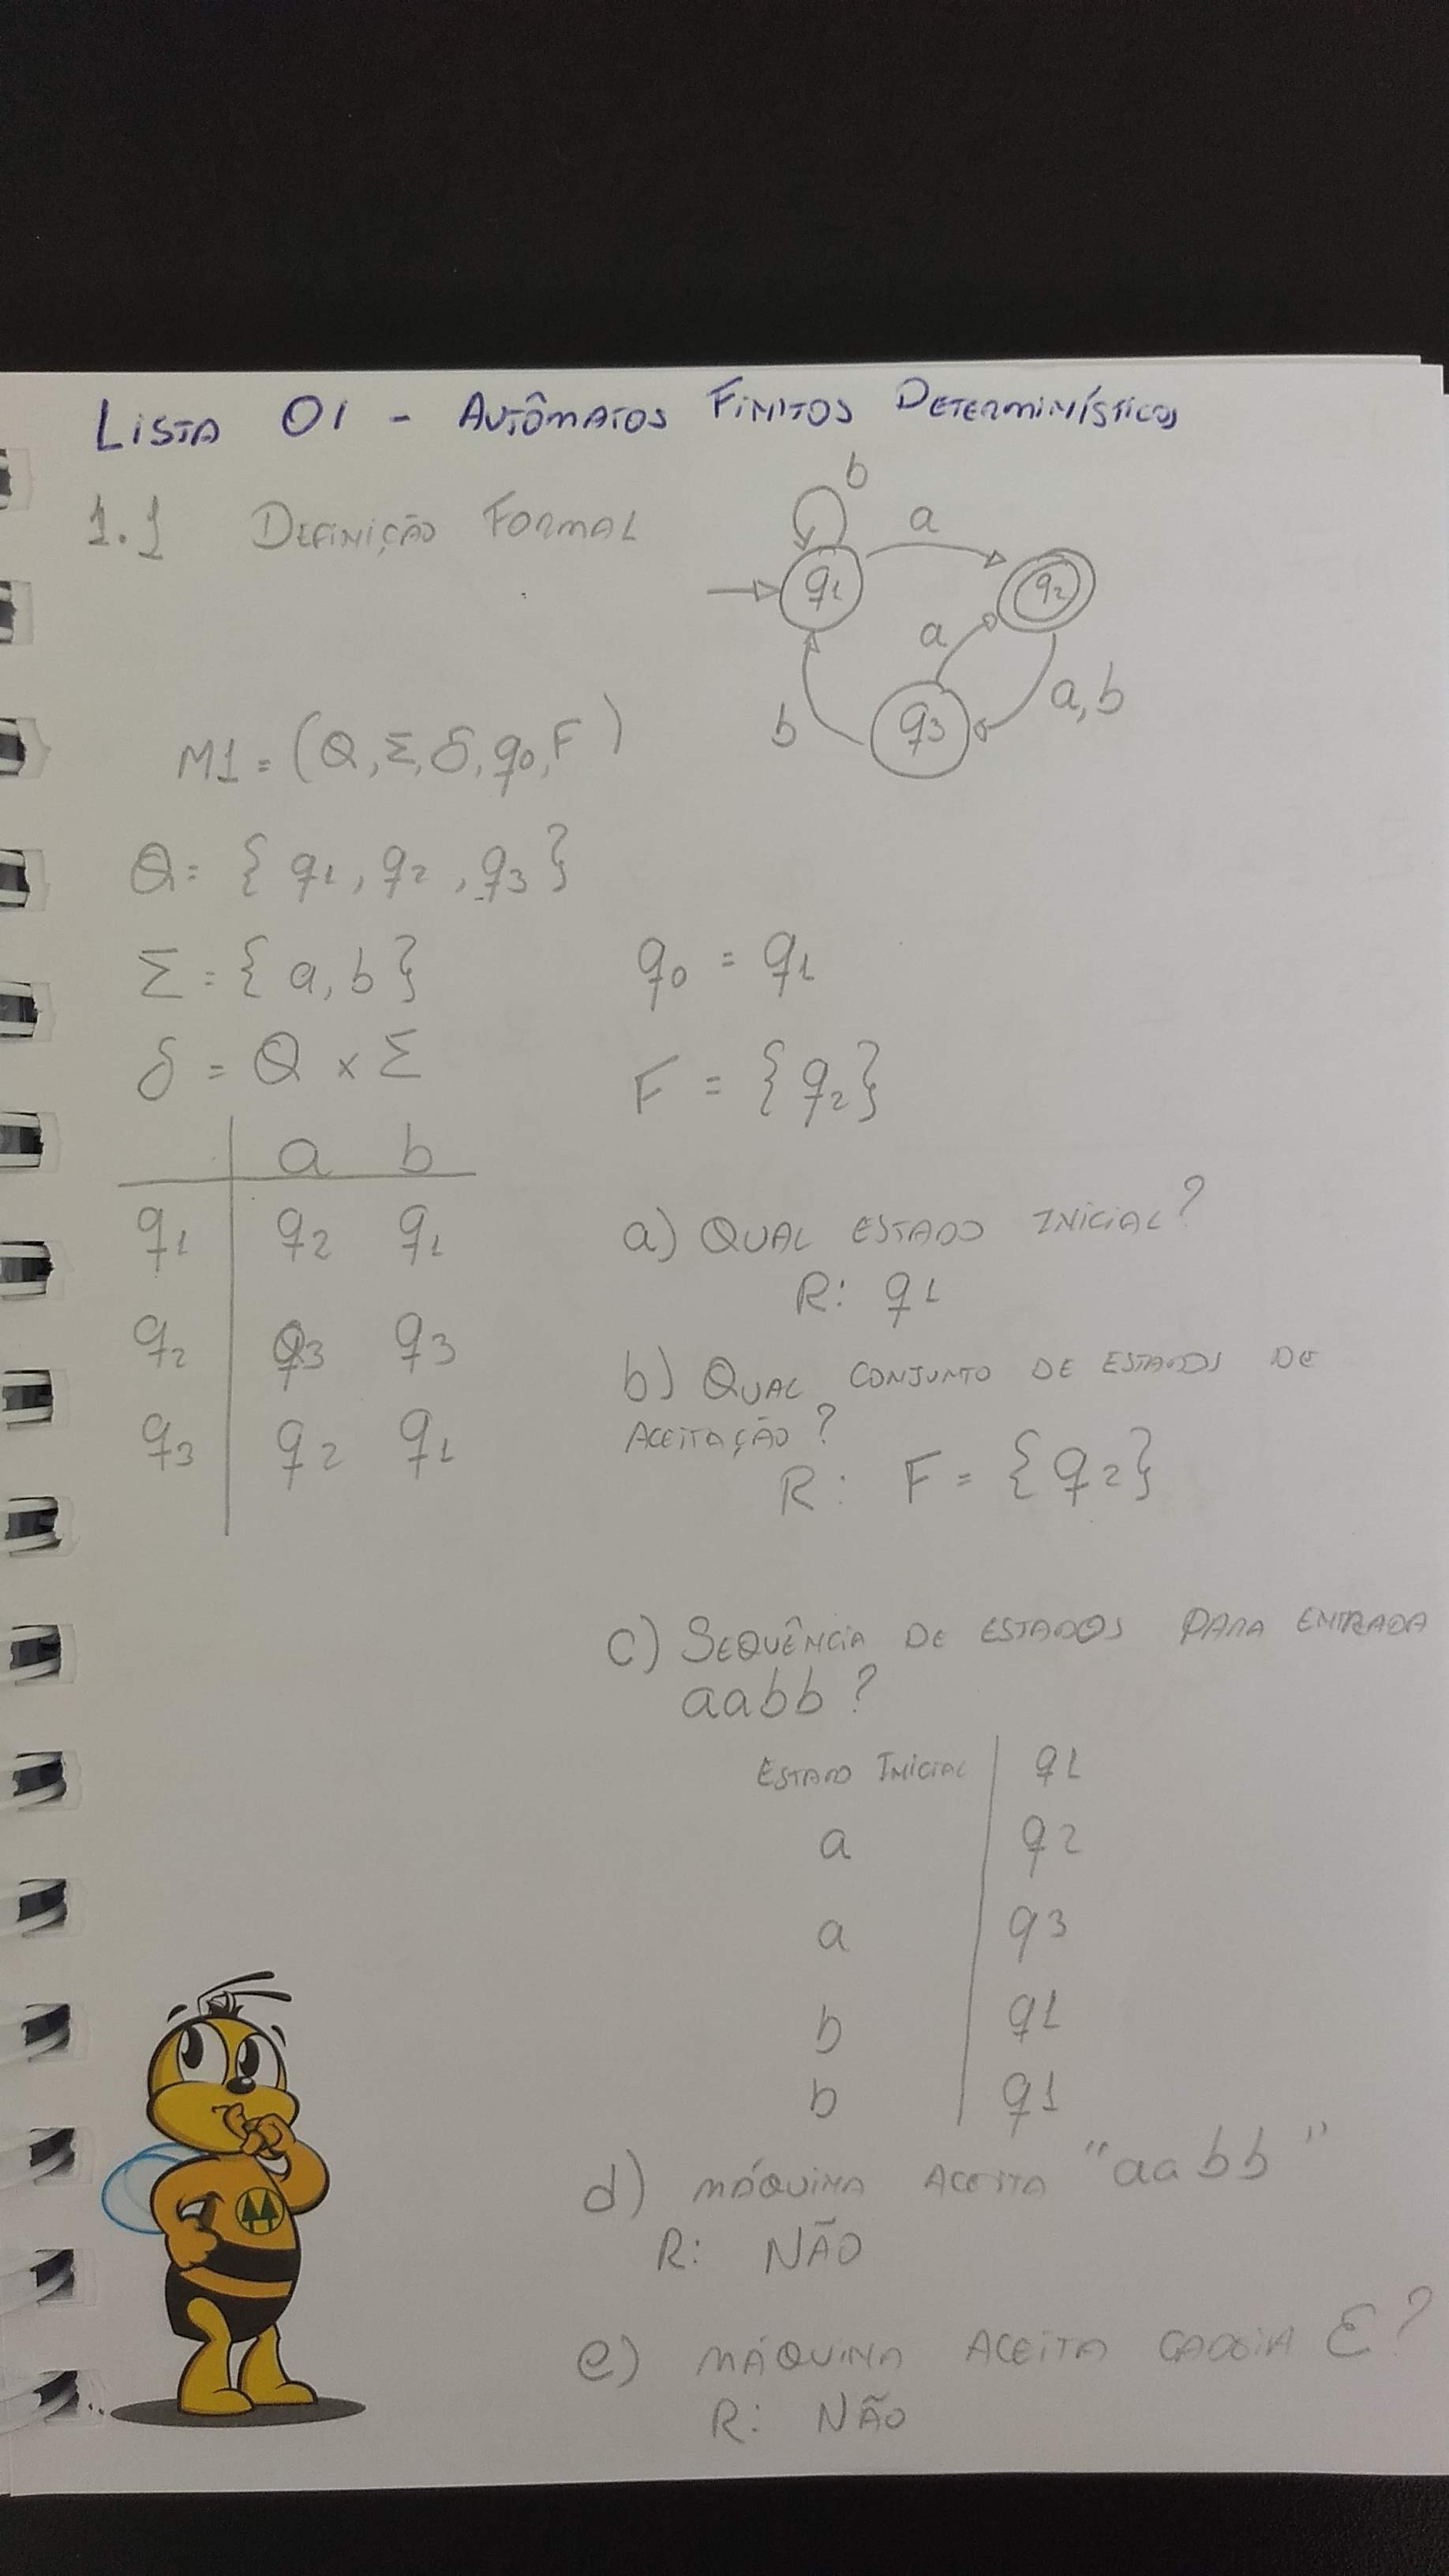 LISTA 01 - AUTÔMATOS FINITOS DETERMINÍSTICOS
1.1 DEFINIÇÃO FORMAL
b
a
q1
q2
a
a,b
b
q3
M1 = (Q, Σ, δ, q0, F)
Q = { q1, q2, q3 }
Σ = { a, b }
q0 = q1
δ = Q x Σ
F = { q2 }
a b
q1 q2 q1
q2 q3 q3
q3 q2 q1
a) QUAL ESTADO INICIAL?
R: q1
b) QUAL CONJUNTO DE ESTADOS DE
ACEITAÇÃO?
R: F = { q2 }
c) SEQUÊNCIA DE ESTADOS PARA ENTRADA
aabb?
ESTADO INICIAL q1
a q2
a q3
b q1
b q1
d) MÁQUINA ACEITA "aabb"
R: NÃO
e) MÁQUINA ACEITA CADEIA ε?
R: NÃO